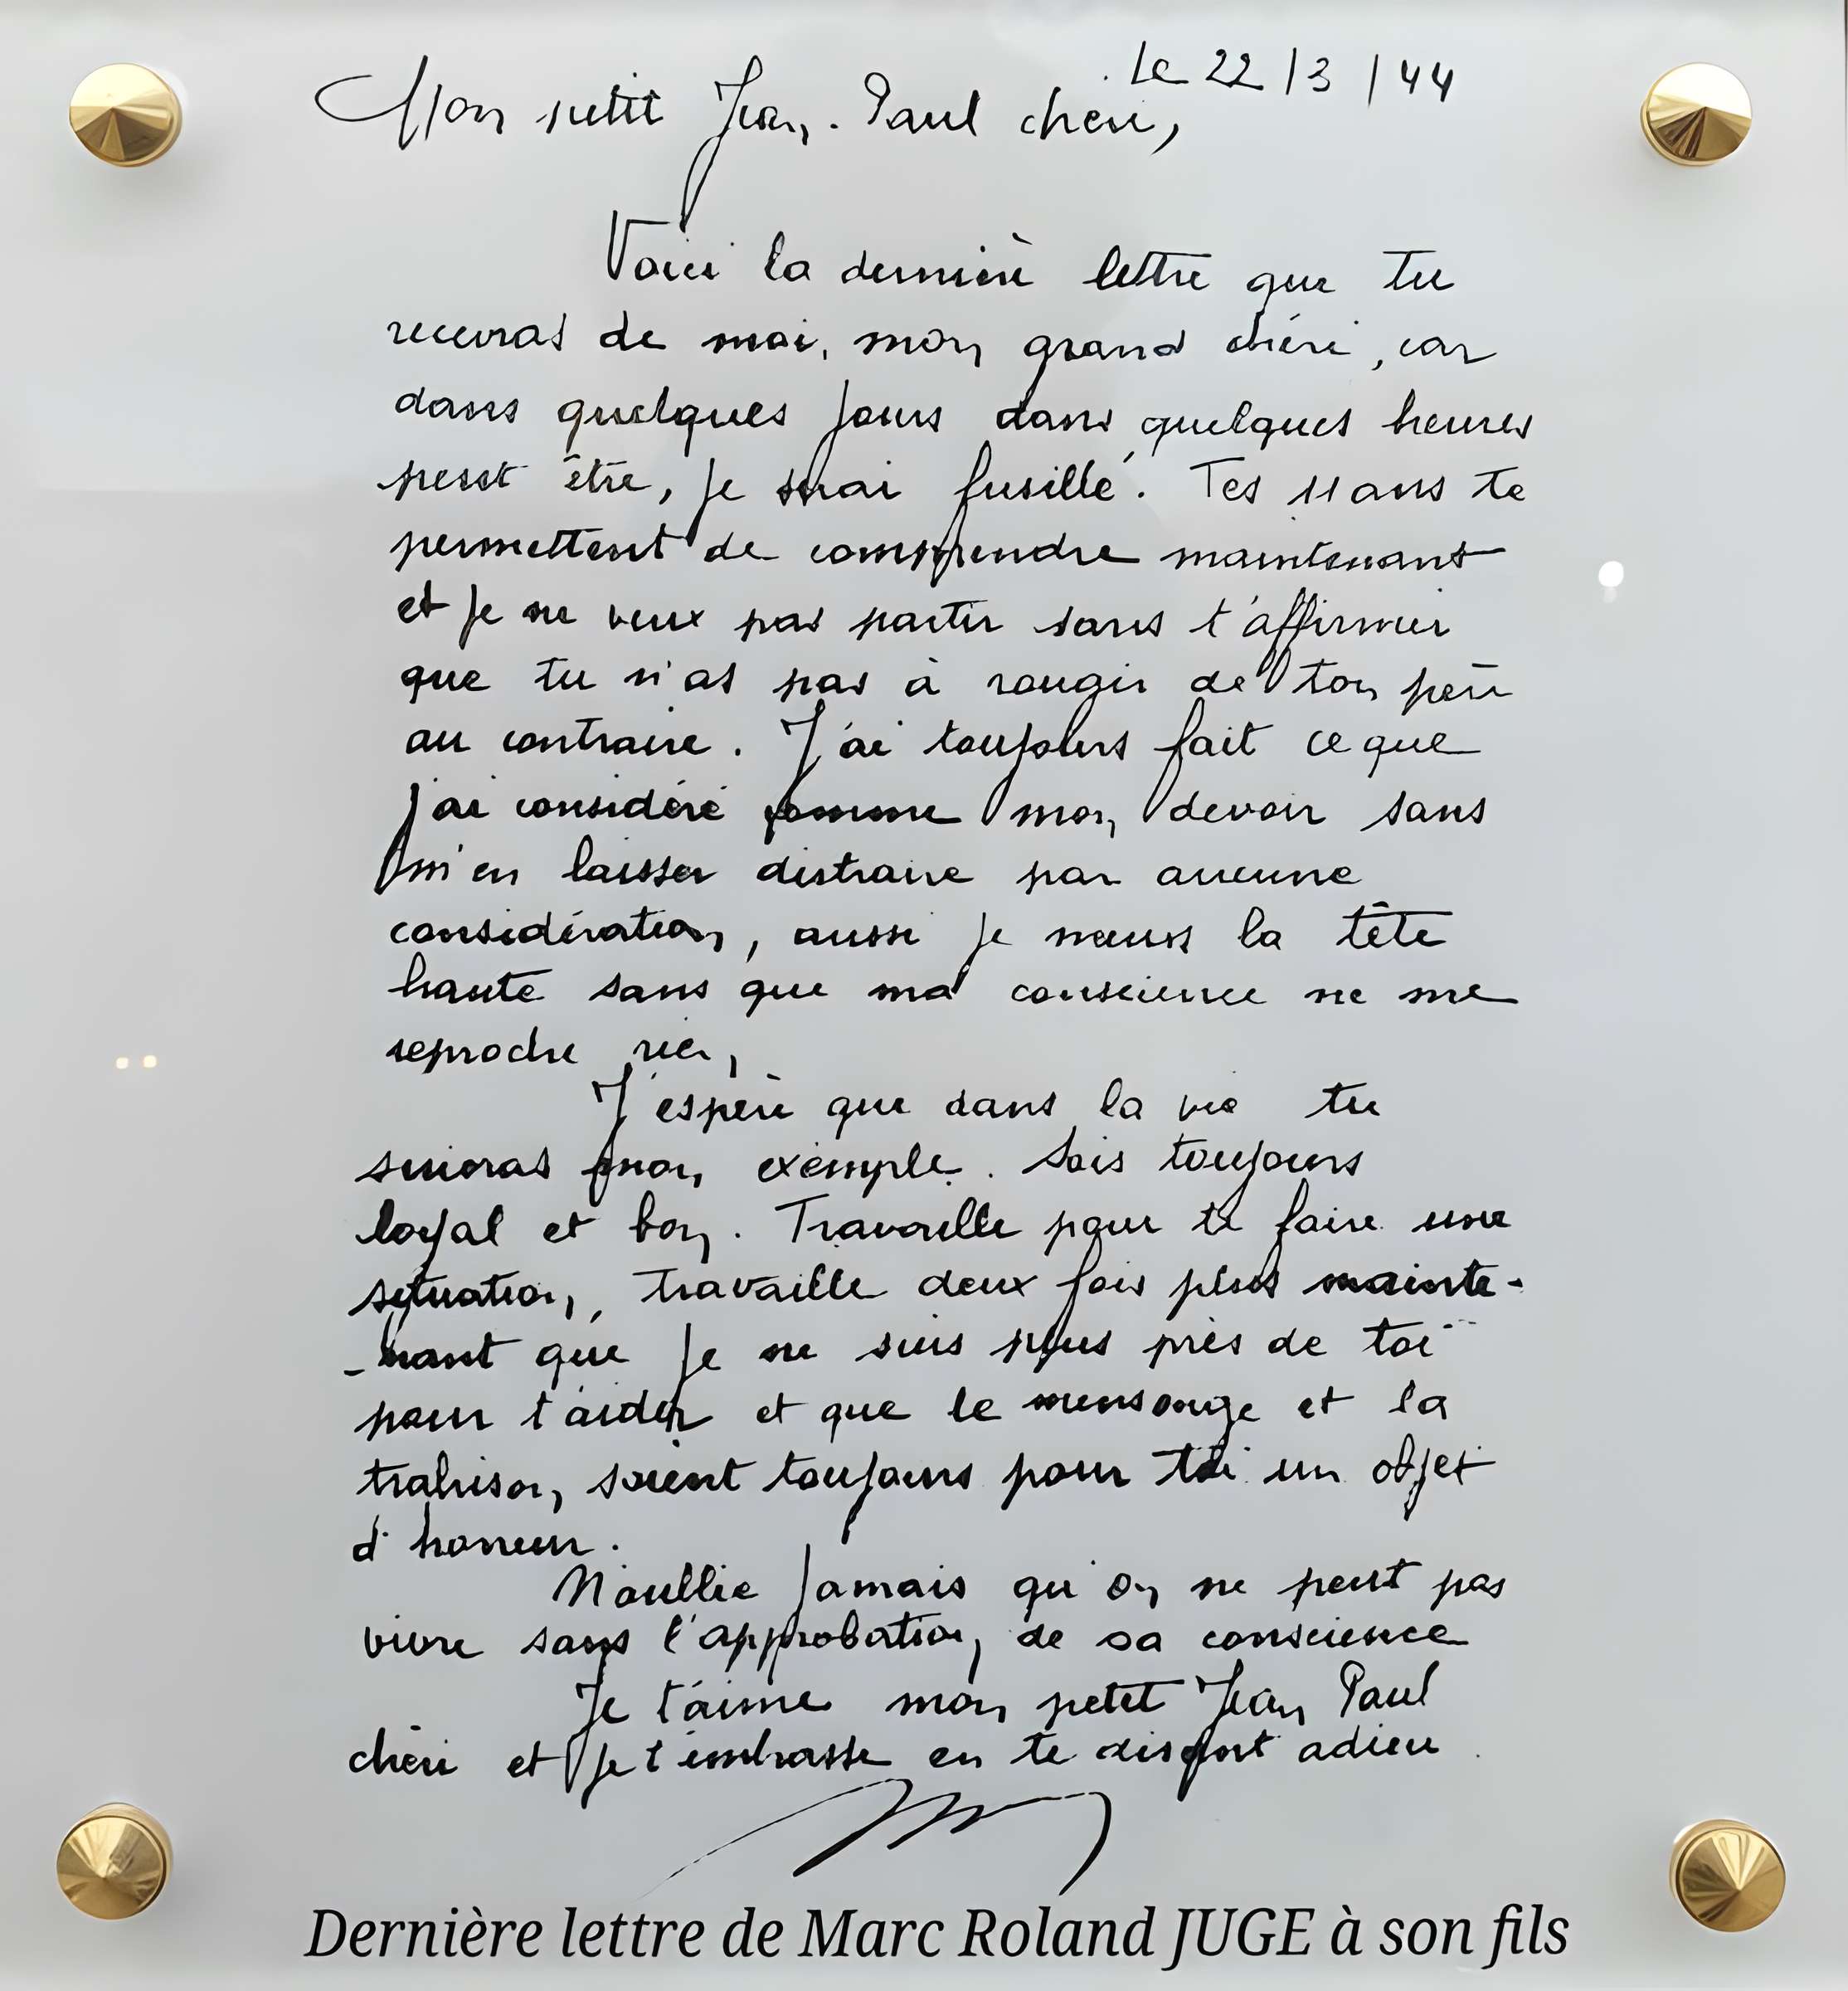 Le 22/3/44
Mon petit Jean-Paul chéri,
Voici la dernière lettre que tu
recevras de moi, mon grand chéri, car
dans quelques jours dans quelques heures
peut être, je serai fusillé. Tes 11 ans te
permettent de comprendre maintenant
et je ne veux pas partir sans t'affirmer
que tu n'as pas à rougir de ton père
au contraire. J'ai toujours fait ce que
j'ai considéré comme mon devoir sans
m'en laisser distraire par aucune
considération, aussi je meurs la tête
haute sans que ma conscience ne me
reproche rien,
J'espère que dans la vie tu
suivras mon exemple. Sois toujours
loyal et bon. Travaille pour te faire une
situation, travaille deux fois plus mainte-
-nant que je ne suis plus près de toi
pour t'aider et que le mensonge et la
trahison, soient toujours pour toi un objet
d'horreur.
N'oublie jamais qu'on ne peut pas
vivre sans l'approbation, de sa conscience
Je t'aime mon petit Jean Paul
chéri et je t'embrasse en te disant adieu
Dernière lettre de Marc Roland JUGE à son fils